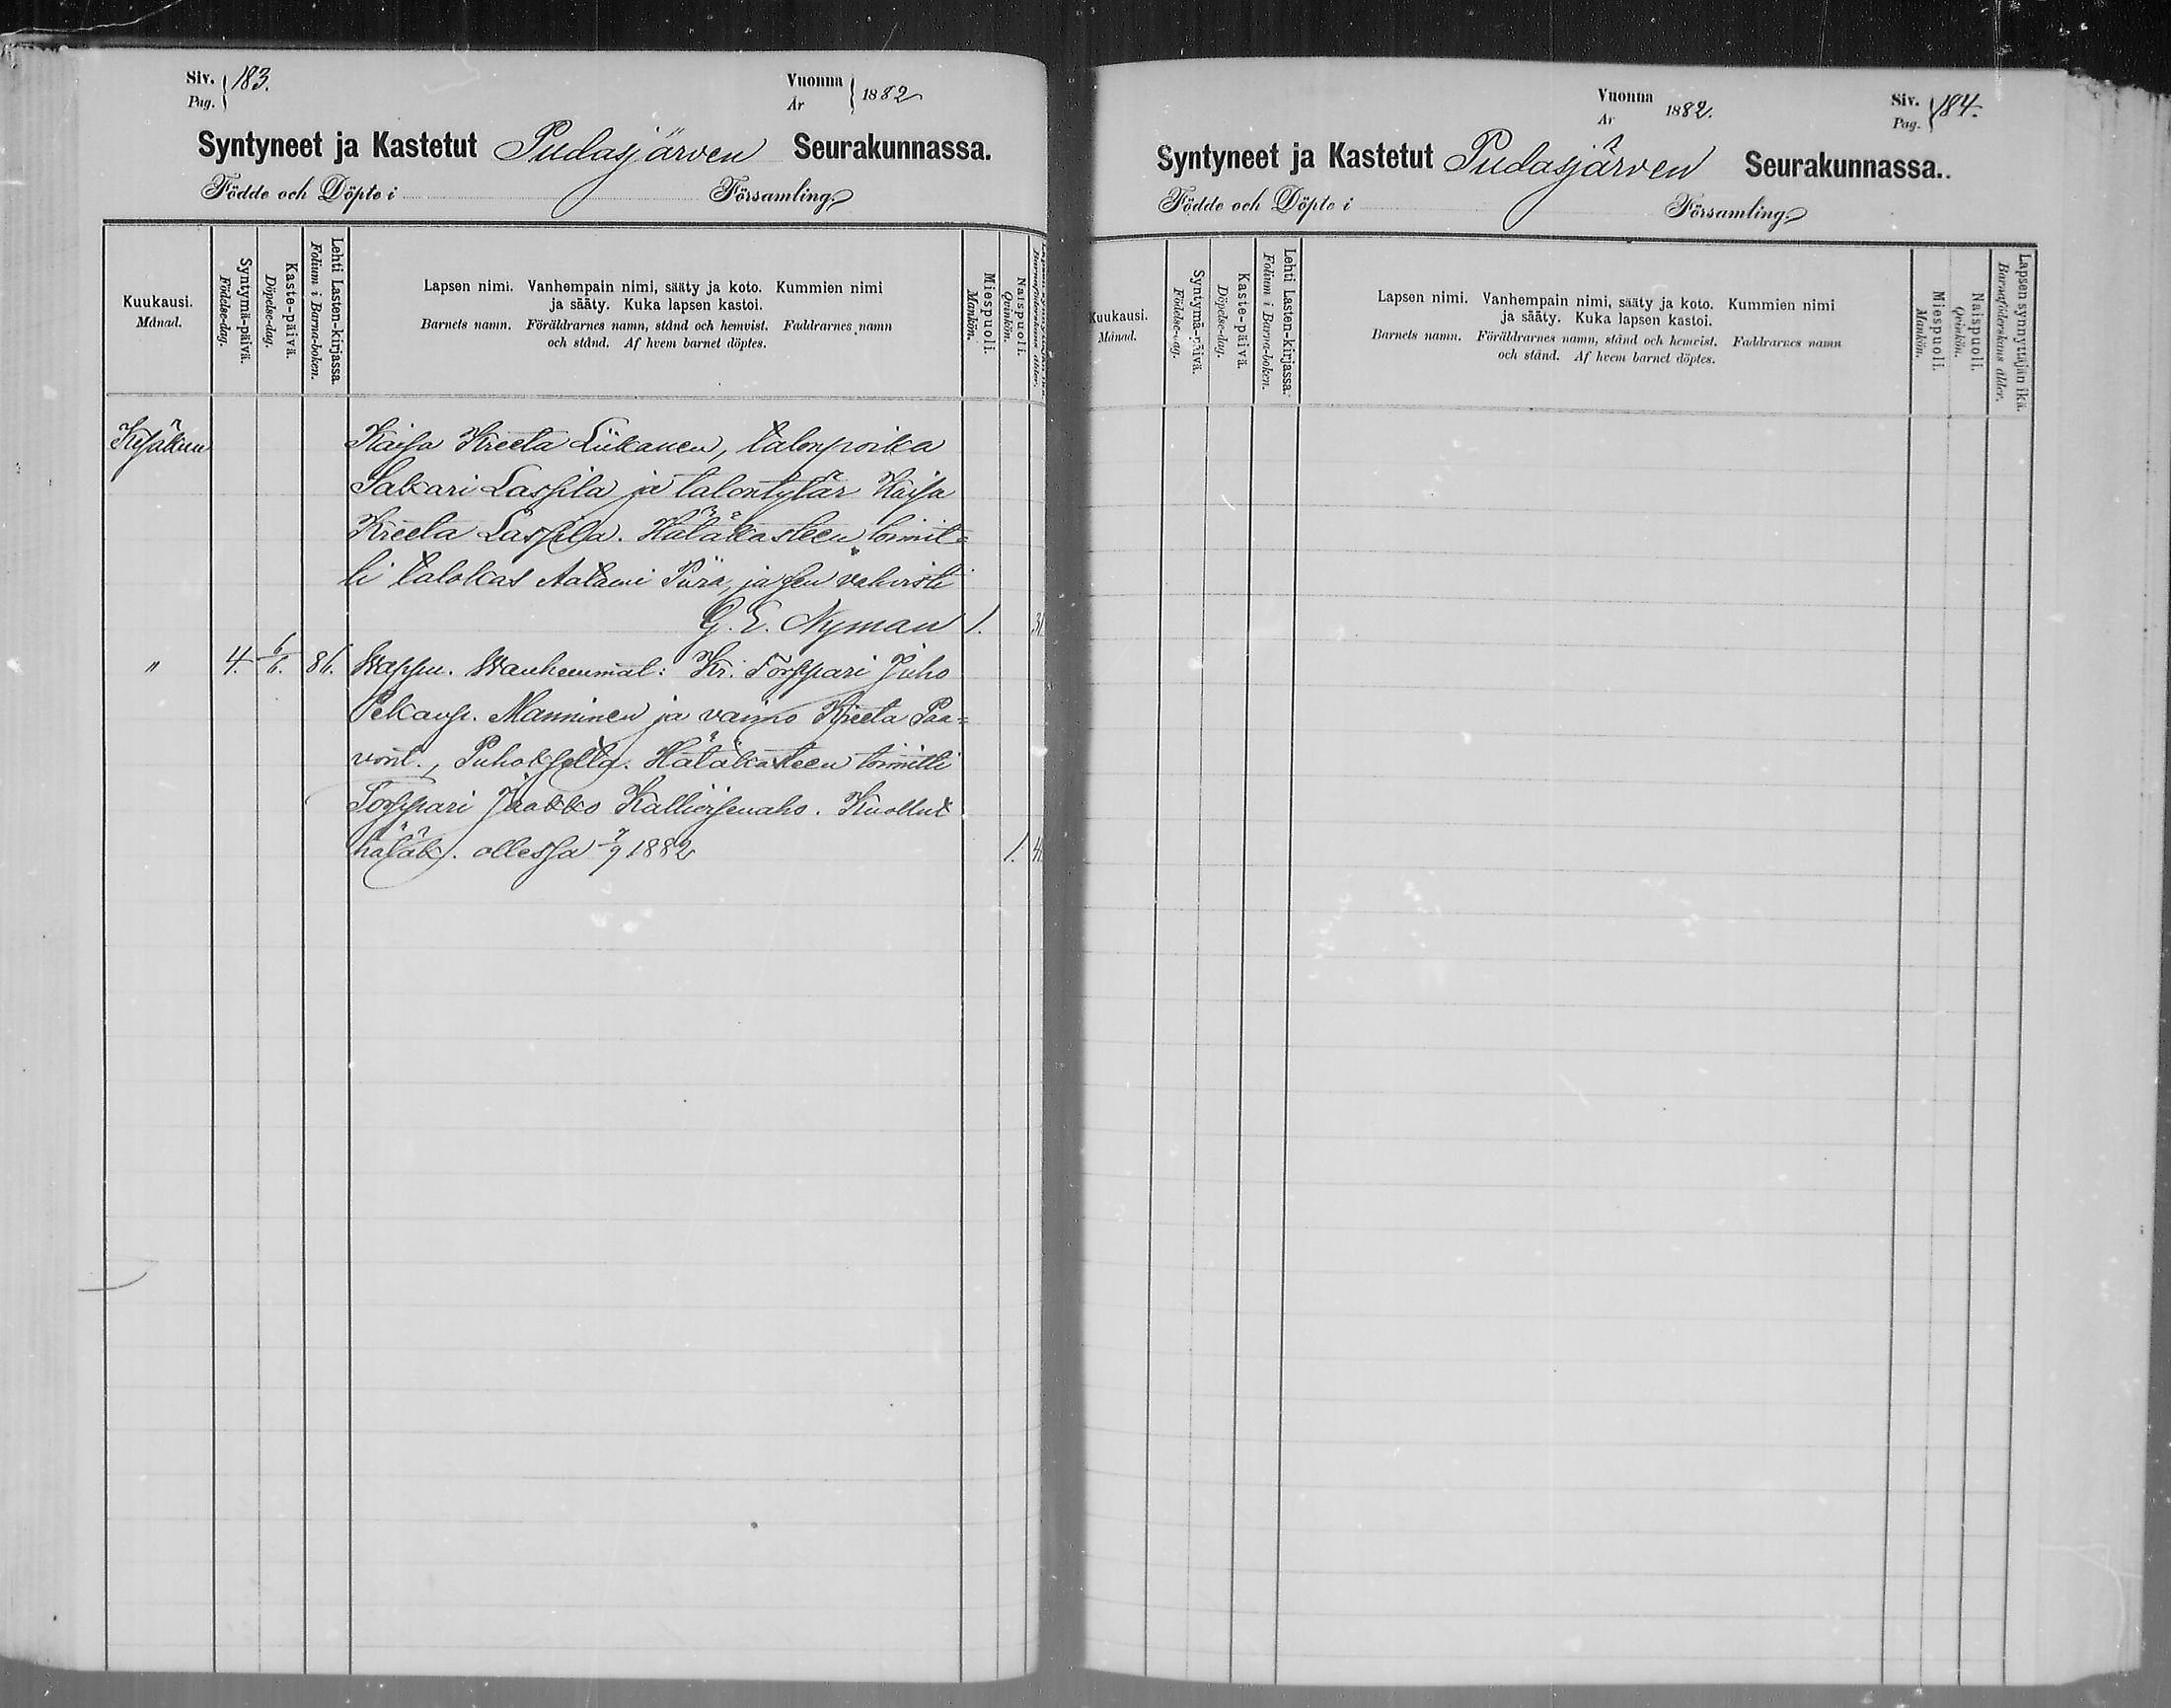 Siv. 183.
Pag.
Vuonna 1882
År
Syntyneet ja Kastetut Pudasjärven Seurakunnassa.
Födde och Döpte i Församling.
Kuukausi.
Månad.
Syntymä-päivä.
Födelse-dag.
Kaste-päivä.
Döpelse-dag.
Lehti Lasten-kirjassa.
Folium i Barna-boken.
Lapsen nimi. Vanhempain nimi, sääty ja koto. Kummien nimi
ja sääty. Kuka lapsen kastoi.
Barnets namn. Föräldrarnes namn, stånd och hemvist. Faddrarnes namn
och stånd. Af hvem barnet döptes.
Miespuoli.
Mankön.
Naispuoli.
Qvinkön.
Kesäkuu Kaisa Kreeta Liikanen, talonpoika
Sakari Lassila ja talontytär Kaisa
Kreeta Lassila. Hätäkasteen toimit-
ti talokas Aatami Piira, ja sen vahvisti
G. E. Nyman 1. 31
" 4. 6/6. 86. Wappu. Wanhemmat: Kr. Torppari Juho
Pekanp. Manninen ja vaimo Kreeta Paa-
vont., Puhokselta. Hätäkasteen toimitti
Torppari Jaakko Kallionsenaho. Kuollut
hätäk. ollessa 7/9 1882 1. 41
Vuonna 1882.
År
Siv. 184.
Pag.
Syntyneet ja Kastetut Pudasjärven Seurakunnassa.
Födde och Döpte i Församling.
Kuukausi.
Månad.
Syntymä-päivä.
Födelse-dag.
Kaste-päivä.
Döpelse-dag.
Lehti Lasten-kirjassa.
Folium i Barna-boken.
Lapsen nimi. Vanhempain nimi, sääty ja koto. Kummien nimi
ja sääty. Kuka lapsen kastoi.
Barnets namn. Föräldrarnes namn, stånd och hemvist. Faddrarnes namn
och stånd. Af hvem barnet döptes.
Miespuoli.
Mankön.
Naispuoli.
Qvinkön.
Lapsen synnyttäjän ikä.
Barnaföderskans ålder.